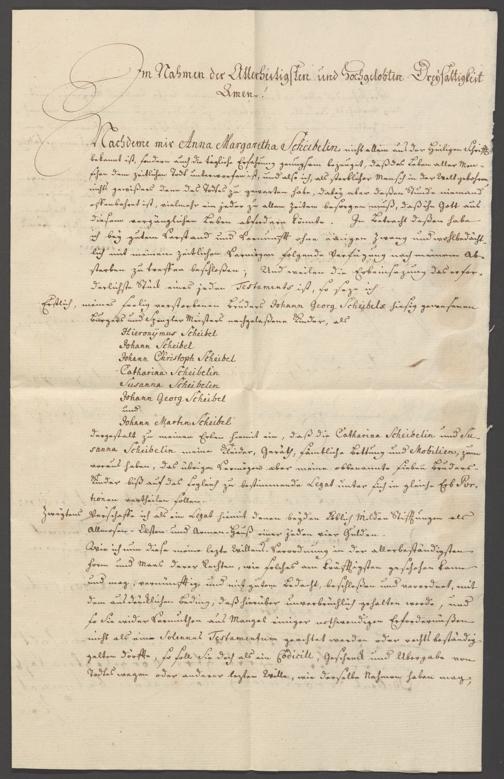 Im Nahmen der Allerheiligsten und Hochgelobten Dreyfaltigkeit
Amen.!
Nachdeme mir Anna Margaretha Scheibelin, nicht allein aus der Heiligen Schrifft
bekannt ist, sondern auch die tägliche Erfahrung genugsam bezeuget, daß das Leben aller Men-
schen dem zeitlichen Todt unterworffen ist, und als ich, als sterblicher Mensch in der Welt gebohren
nichts gewißers denn des Todtes zu gewarten habe, dabey aber deßen Stunde niemand
offenbahret ist, vielmehr ein jeder zu allen Zeiten besorgen muß, daß ihn Gott aus
diesem vergänglichen Leben abfordern könnte. In Betracht deßen habe
ich bey gutem Verstand und Vernunfft ohne einigen Zwang und wohlbedächt-
lich mit meinem zeitlichen Vermögen folgende Verfügung nach meinem Ab-
sterben zu treffen beschloßen; Und weilen die Erbeinsezung das erfor-
derlichste Stück eines jeden Testaments ist, so seze ich
Erstlich, meines seelig verstorbenen Bruders Johann Georg Scheibels hiesig gewesenen
Burgers und Spengler Meisters nachgelaßene Kinder, als
Hieronÿmus Scheibel
Johann Scheibel
Johann Christoph Scheibel
Catharina Scheibelin
Susanna Scheibelin
Johann Georg Scheibel
und
Johann Martin Scheibel
dergestalt zu meinen Erben hiemit ein, daß die Catharina Scheibelin und Su-
sanna Scheibelin meine Kleider, Geräth, sämtliche Bettung und Mobilien, zum
voraus haben, das übrige Vermögen aber meine obbenannte sieben Bruders-
Kinder biß auf das sogleich zu bestimmende Legat unter sich in gleiche Erb Por-
tionen vertheilen sollen.
Zweytens Verschaffe ich als ein Legat hiemit denen beyden Löblich Milden Stifftungen als
Allmosen-Kasten und Armen-Hauß einer jeden vier Gulden.
Wie ich nun diese meine lezte Willens-Verordnung in der allerbeständigsten
Form und Maas derer Rechten, wie solches am kräfftigsten geschehen kann
und mag, vernünfftig und mit gutem Bedacht, beschloßen und verordnet, mit
dem ausdrücklichen Beding, daß hierüber unverbrüchlich gehalten werde, und
so Sie wider Vermuthen aus Mangel einiger nothwendigen Erforderniße
nicht als eine Solennes Testamentum geachtet werden oder rechts beständig
gelten dörffte, so soll Sie doch als ein Codicill, Geschenck und Übergabe von
Todtes wegen oder anderer lezten Wille, wie derselbe Nahmen haben mag,